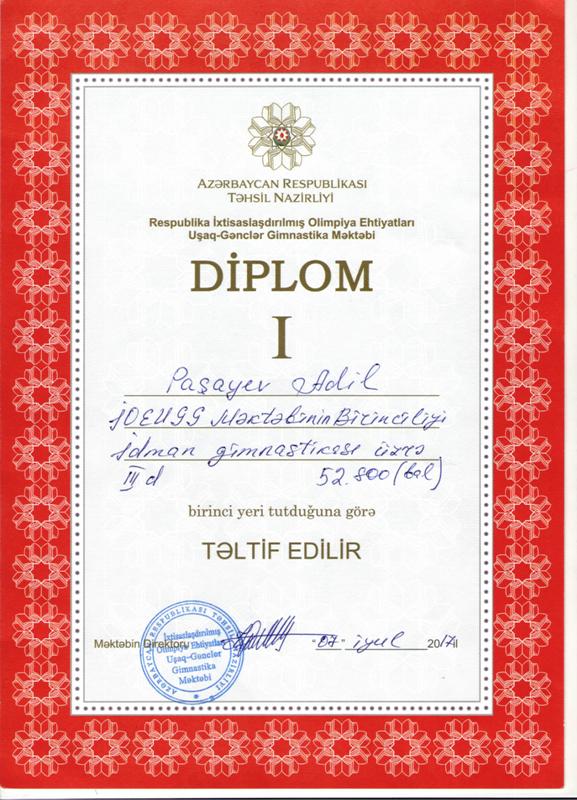 AZƏRBAYCAN RESPUBLİKASI
TƏHSİL NAZİRLİYİ
Respublika İxtisaslaşdırılmış Olimpiya Ehtiyatları
Uşaq-Gənclər Gimnastika Məktəbi
DİPLOM
I
Paşayev Adil
İOEUGG Məktəbinin Birinciliyi
İdman gimnastikası üzrə.
III d 52.800 (bal)
birinci yeri tutduğuna görə
TƏLTİF EDİLİR
Məktəbin Direktoru "07" iyul 2017il
AZƏRBAYCAN RESPUBLİKASI TƏHSİL NAZİRLİYİ
İxtisaslaşdırılmış
Olimpiya Ehtiyatları
Uşaq-Gənclər
Gimnastika
Məktəbi